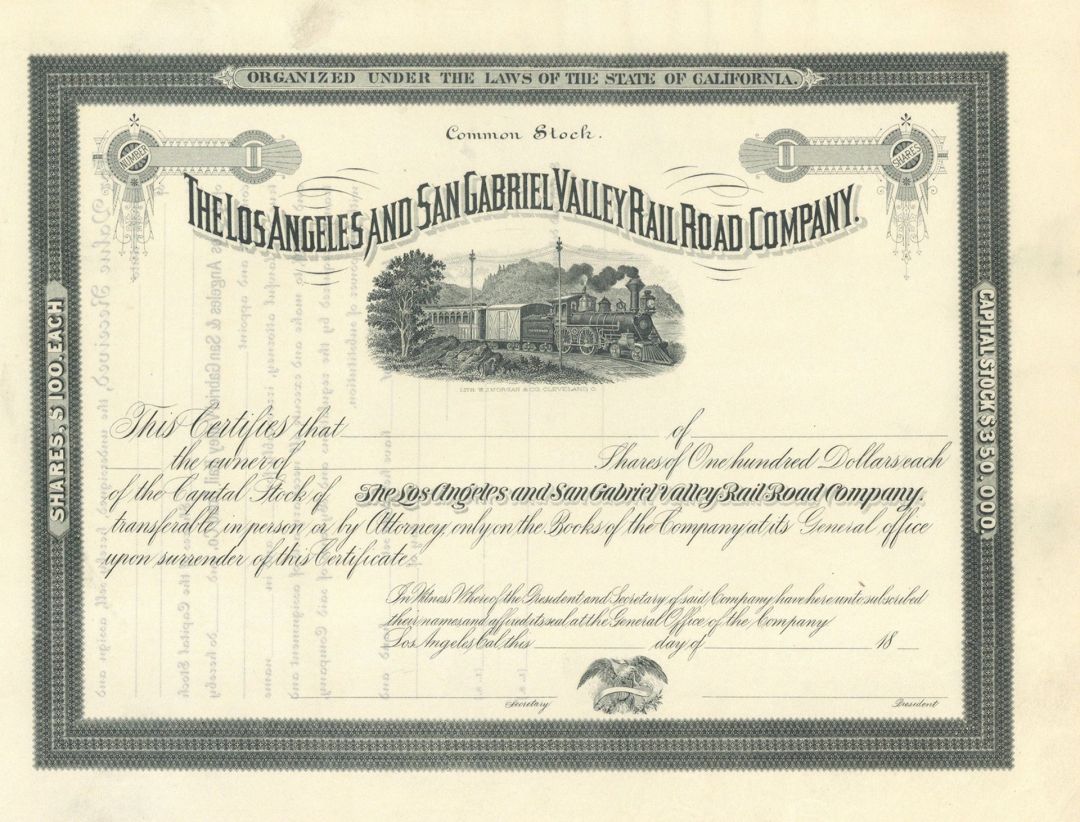 ORGANIZED UNDER THE LAWS OF THE STATE OF CALIFORNIA.
Common Stock.
NUMBER
SHARES
THE LOS ANGELES AND SAN GABRIEL VALLEY RAIL ROAD COMPANY.
LITH. W.J. MORGAN & CO. CLEVELAND, O.
SHARES, $100. EACH
CAPITAL STOCK $350,000.
This Certifies that of
the owner of Shares of One hundred Dollars each
of the Capital Stock of The Los Angeles and San Gabriel Valley Rail Road Company.
transferable in person or by Attorney only on the Books of the Company at its General office
upon surrender of this Certificate.
In Witness Whereof the President and Secretary of said Company have here unto subscribed
their names and affixed its seal at the General Office of the Company
Los Angeles, Cal, this day of 18
Secretary
President